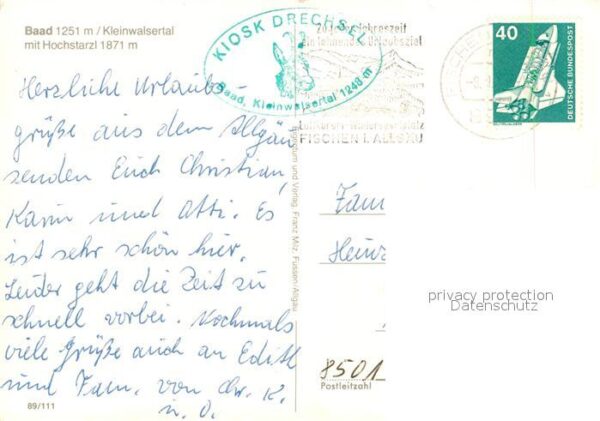 Baad 1251 m / Kleinwalsertal
mit Hochstarzl 1871 m
KIOSK DRECHSEL
Baad, Kleinwalsertal 1248 m
zu jeder Jahreszeit
ein lohnendes Urlaubsziel
FISCHEN I. ALLGÄU
40
DEUTSCHE BUNDESPOST
Herzliche Urlaubs-
grüße aus dem Allgäu
senden Euch Christian,
Karin und Otti. Es
ist sehr schön hier.
Leider geht die Zeit zu
schnell vorbei. Nochmals
viele Grüße auch an Edith
und Fam. von Chr. K.
u. O.
89/111
und Verlag Franz Milz, Füssen-Allgäu
Fam
Heinz
privacy protection
Datenschutz
8501
Postleitzahl